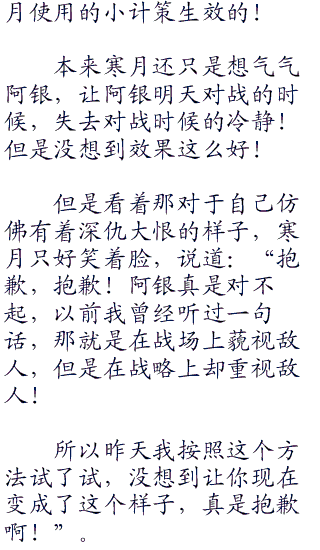 月使用的小计策生效的！
本来寒月还只是想气气
阿银，让阿银明天对战的时
候，失去对战时候的冷静！
但是没想到效果这么好！
但是看着那对于自己仿
佛有着深仇大恨的样子，寒
月只好笑着脸，说道：“抱
歉，抱歉！阿银真是对不
起，以前我曾经听过一句
话，那就是在战场上藐视敌
人，但是在战略上却重视敌
人！
所以昨天我按照这个方
法试了试，没想到让你现在
变成了这个样子，真是抱歉
啊！”。